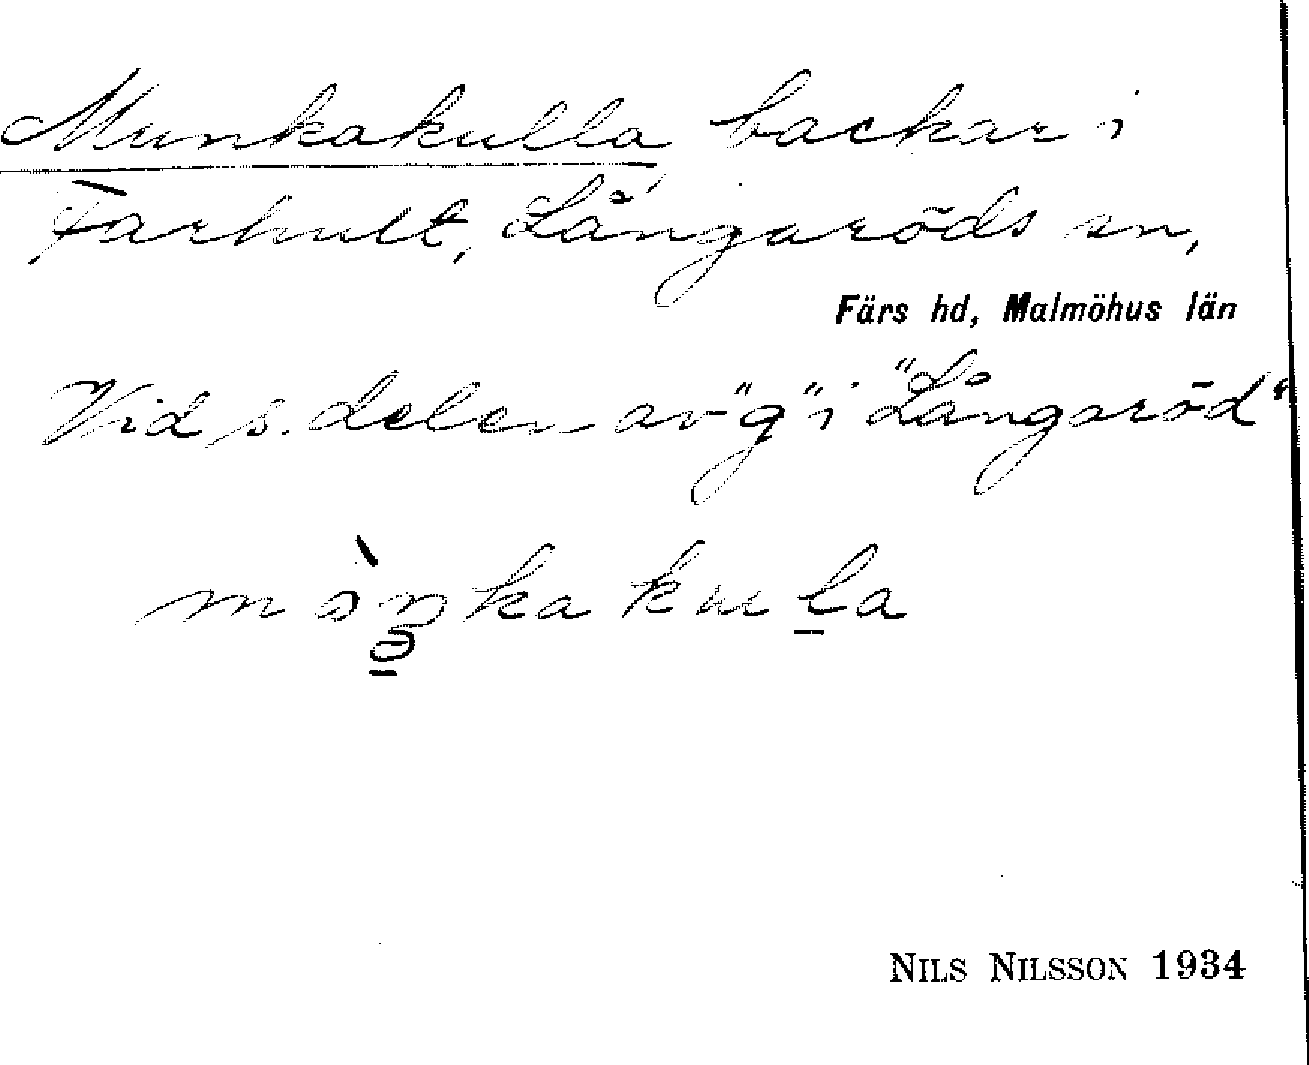 Munkakulla, backar i
Farhult, Långaröds sn,
Färs hd, Malmöhus län
Vid s. delen av "g" i "Långaröd"
NILS NILSSON 1934